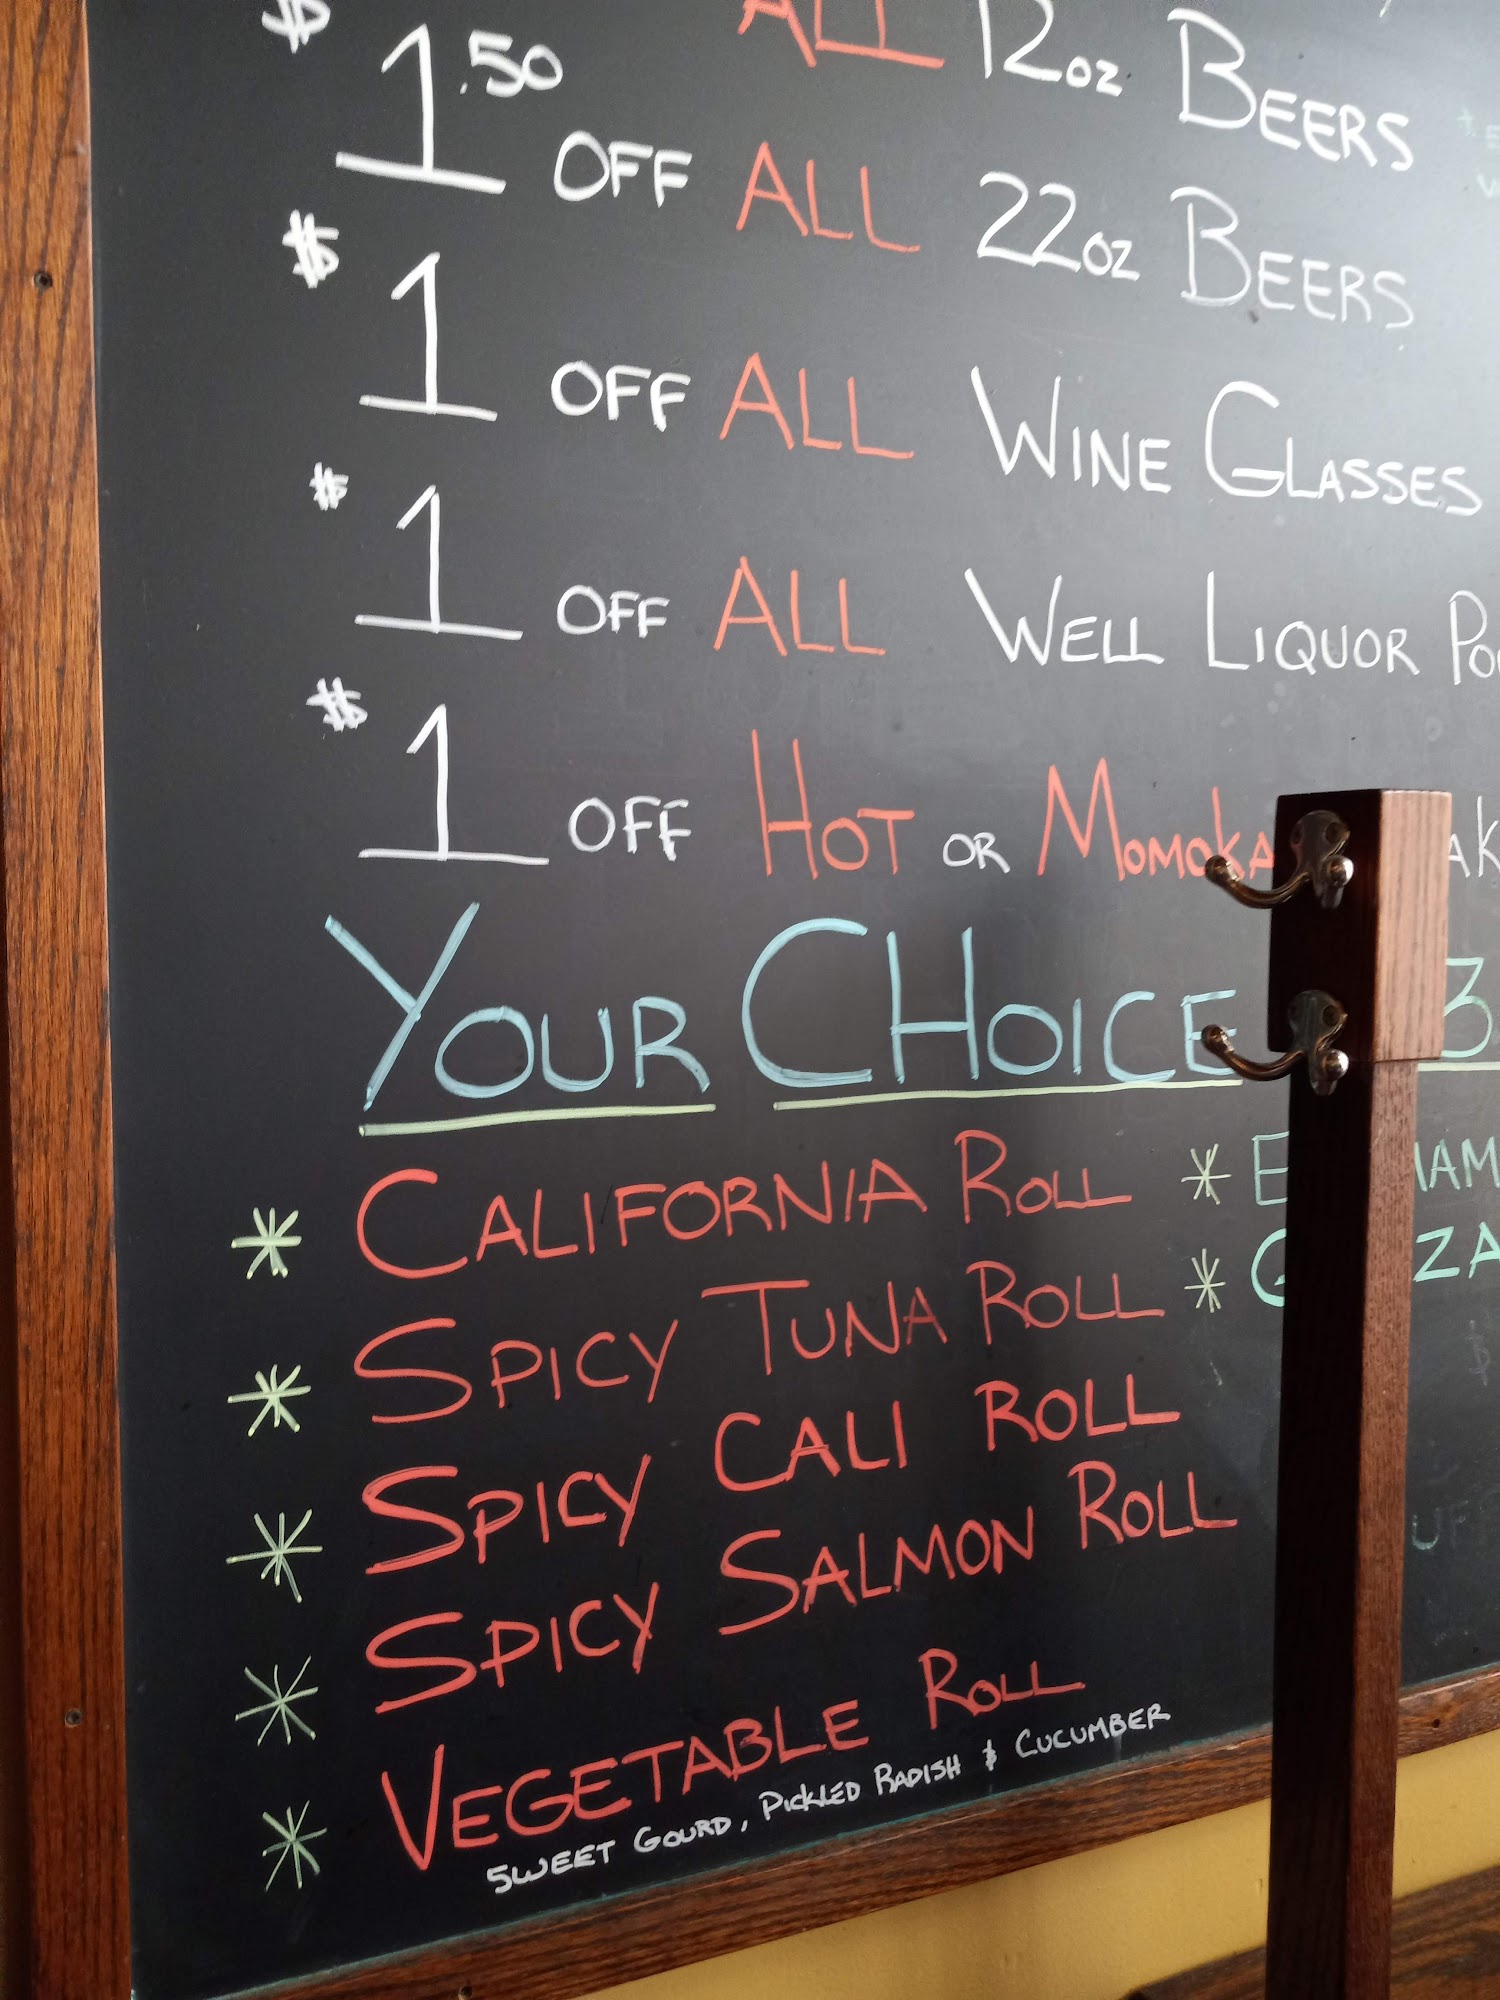 ALL 12oz BEERS
$1.50 OFF ALL 22oz BEERS
$1 OFF ALL WINE GLASSES
$1 OFF ALL WELL LIQUOR
$1 OFF HOT OR
YOUR CHOICE
* CALIFORNIA ROLL
* SPICY TUNA ROLL
* SPICY CALI ROLL
* SPICY SALMON ROLL
* VEGETABLE ROLL
SWEET GOURD, PICKLED RADISH & CUCUMBER